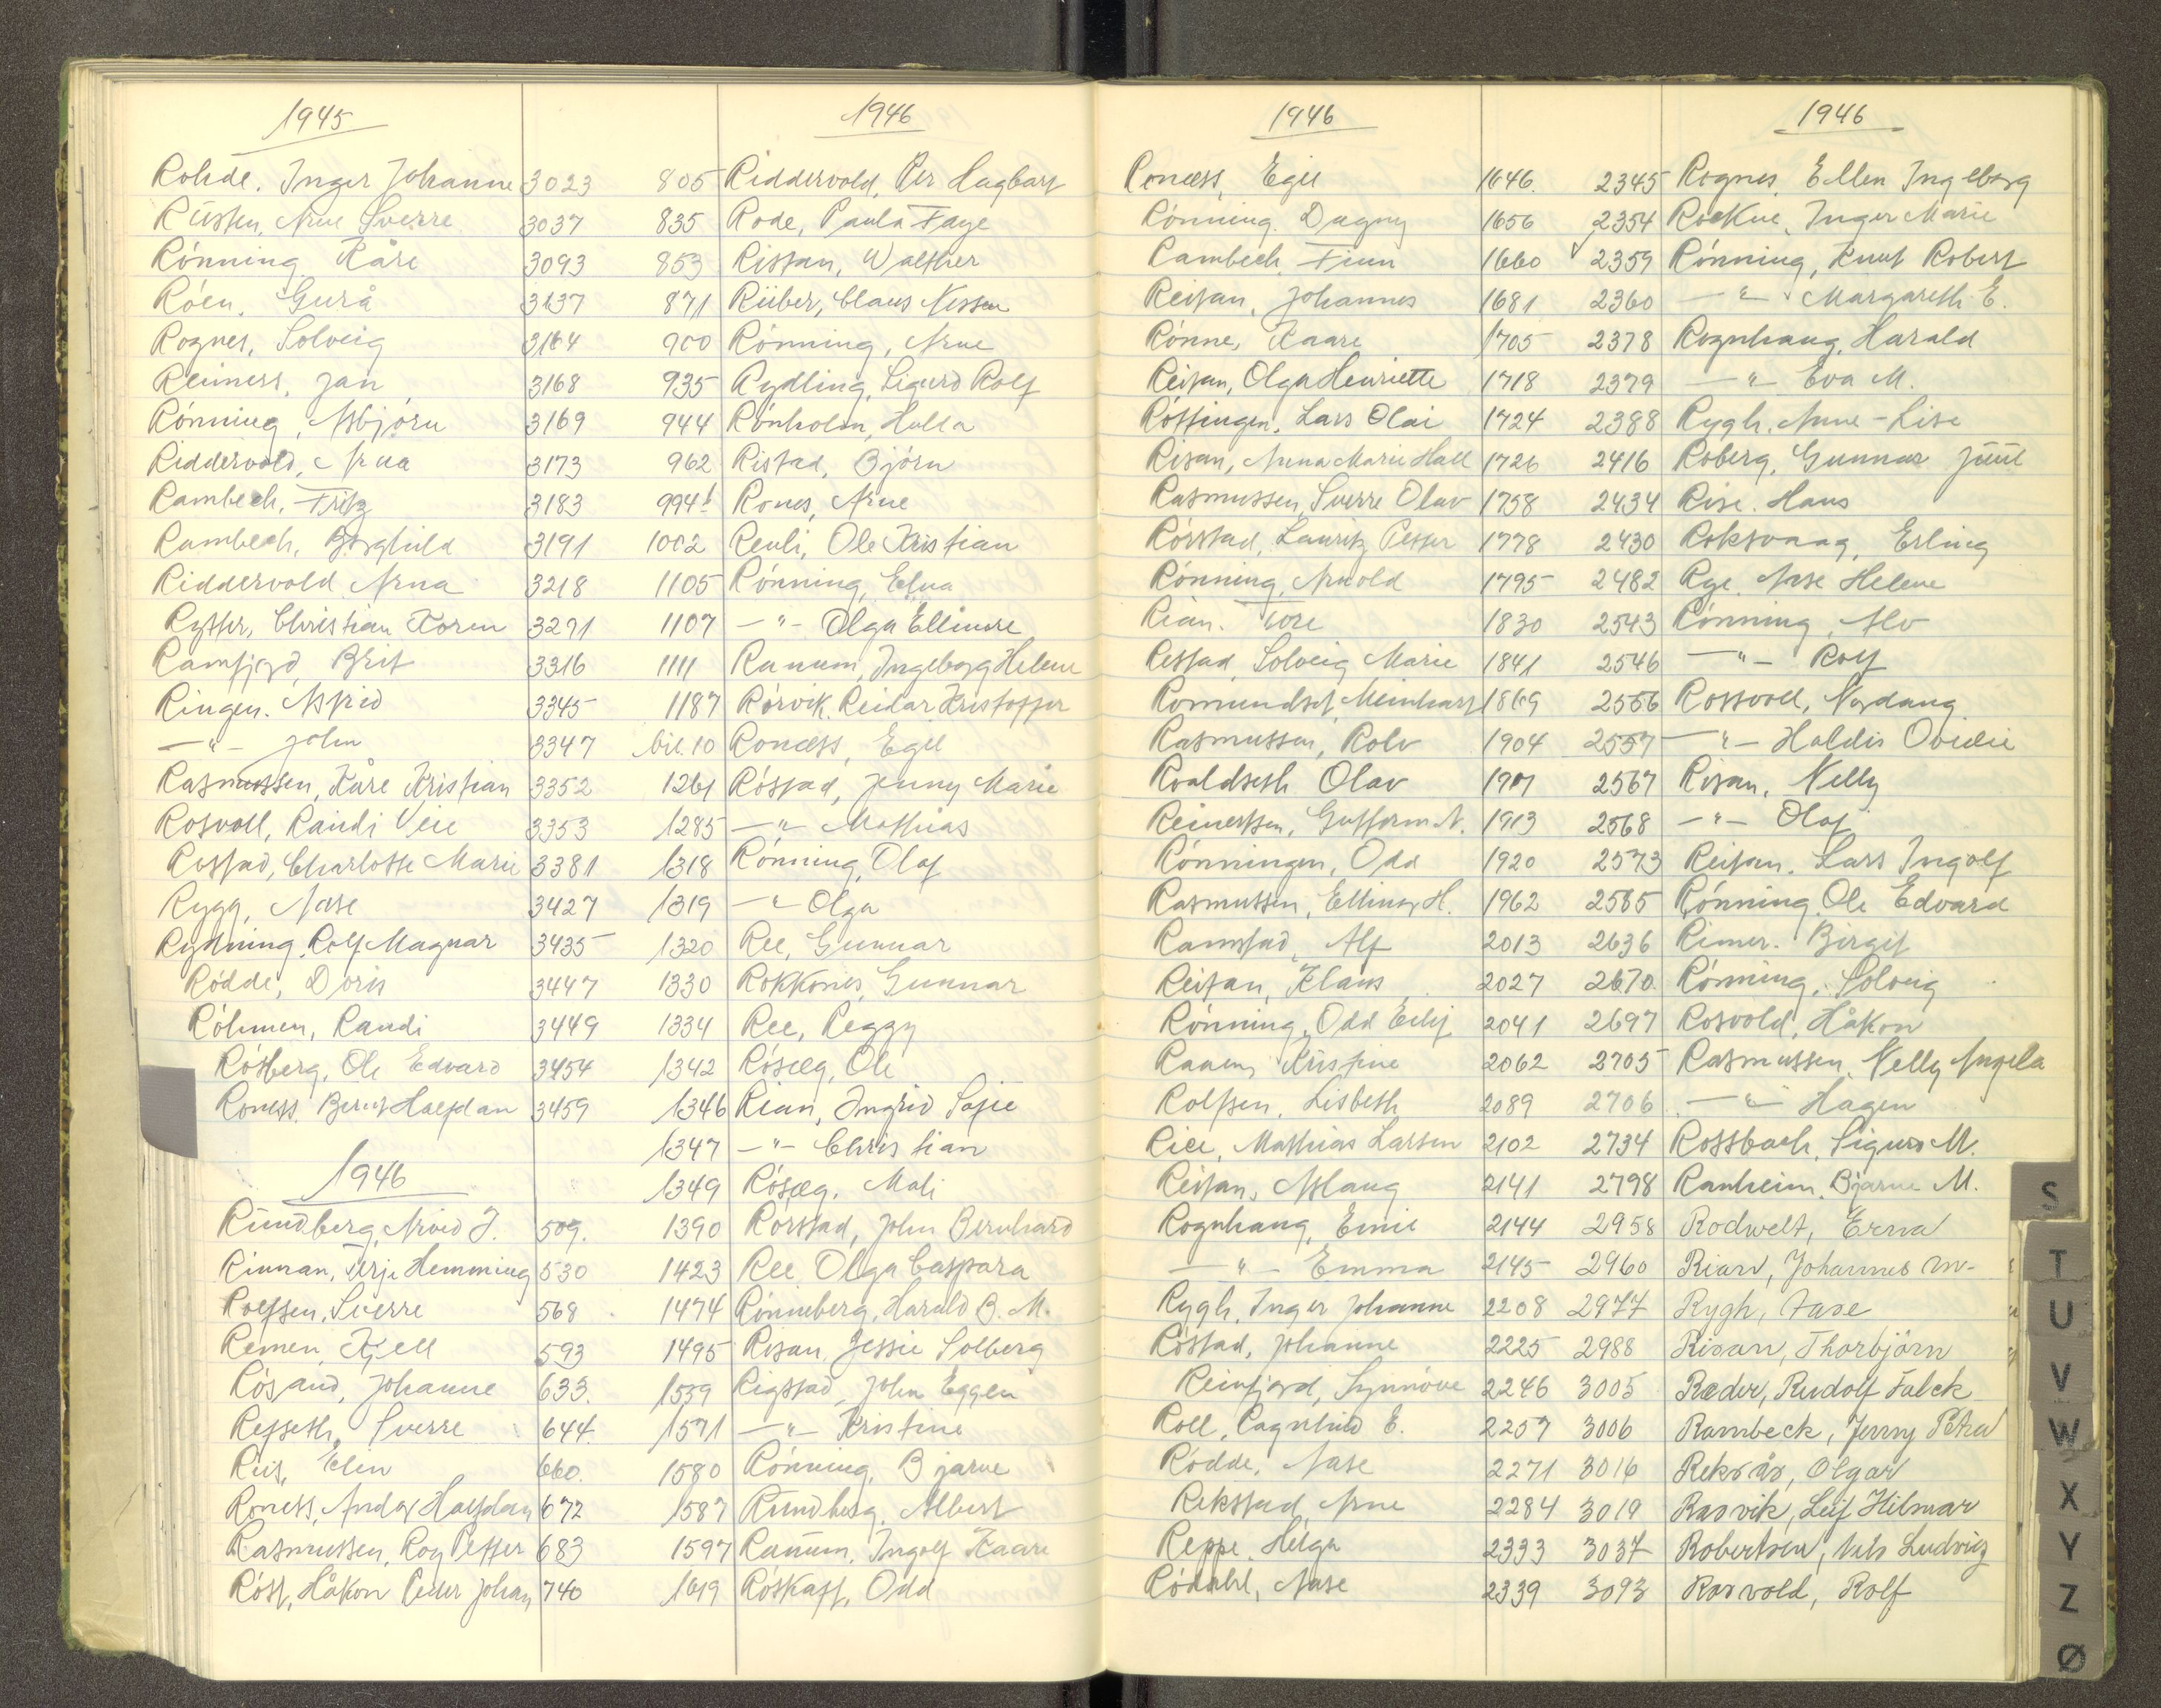 1945
Rohde, Inger Johanne 3023
Rusten, Arne Sverre 3037
Rönning Kåre 3093
Röen, Gurå 3137
Rognes, Solveig 3164
Reiness, Jan 3168
Rönning, Asbjörn 3169
Riddervold, Arna 3173
Rambech, Fritz 3183
Rambech, Borghild 3191
Riddervold Arna 3218
Rytter, Christian Koren 3291
Ramfjord, Brit 3316
Ringen. Astrid 3345
—"— John 3347
Rasmussen, Kåre Kristian 3352
Rosvoll, Randi Veie 3353
Rostad, Charlotte Marie 3381
Rygg, Aase 3427
Rydning, Rolf Magnar 3435
Rödde, Doris 3447
Röhmen, Randi 3449
Röstberg, Ole Edvard 3454
Roness Bernt Halfdan 3459
1946
Rundberg, Arvid J. 509.
Rinnan, Terje Hemming 530
Rolfsen, Sverre 568
Remen, Kjell 593
Rösand, Johanne 633.
Refseth, Sverre 644.
Riis, Elin 660.
Roness, Andor Halfdan 672
Rasmussen, Roy Petter 683
Röst, Håkon Peder Johan 740
1946
805 Riddervold, Per Hagbart
835 Rode, Paula Faye
853 Ristan, Walther
871 Rüber, Claus Nissen
900 Rönning, Arne
935 Rydling, Sigurd Rolf
944 Rönholm, Hulla
962 Ristad, Björn
994½ Rones, Arne
1002 Reuli, Ole Kristian
1105 Rönning, Elna
1107 —"— Olga Ellinore
1111 Ranum, Ingeborg Helene
1187 Rörvik, Reidar Kristoffer
bil. 10 Roness, Egil
1261 Röstad, Jenny Marie
1285 —"— Mathias
1318 Rönning, Olaf
1319 —"— Olga
1320 Ree, Gunnar
1330 Rokkones, Gunnar
1334 Ree, Peggy
1342 Rösæg, Ole
1346 Rian, Ingrid Sofie
1347 —"— Christian
1349 Rösæg, Mali
1390 Rörstad, John Bernhard
1423 Ree Olga Caspara
1474 Rönneberg, Harald B. M.
1495 Risan, Jessie Solberg
1539 Rigstad, John Eggen
1571 —"— Kristine
1580 Rönning, Bjarne
1587 Rundberg, Albert
1597 Ranum, Ingolf Kaare
1619 Röskaft, Odd
1946
Roness, Egil 1646.
Rönning. Dagny 1656
Rambech, Finn 1660
Reitan, Johannes 1681
Rönne, Kaare 1705
Reitan, Olga Henriette 1718
Röttingen, Lars Olai 1724
Risan, Anna Marie Hall 1726
Rasmussen, Sverre Olav 1758
Rörstad, Lauritz Petter 1778
Rönning, Arnold 1795
Rian. Tore 1830
Restad, Solveig Marie 1841
Romundset, Meinhart 1869
Rasmussen, Rolv 1904
Roaldseth Olav 1907
Reinertsen, Guttorm N. 1913
Rönningen, Odd 1920
Rasmussen, Ellinor H. 1962
Ramstad, Alf 2013
Reitan, Klaus 2027
Rönning, Odd Eilif 2041
Raaen, Kristine 2062
Rolfsen, Lisbeth 2089
Rice, Mathias Larsen 2102
Reitan, Aslaug 2141
Rognhaug, Emil 2144
—"— Emma 2145
Rygh, Inger Johanne 2208
Röstad, Johanne 2225
Reinfjord, Synnöve 2246
Roll, Ragnhild E. 2257
Rödde, Aase 2271
Rekstad Arne 2284
Reppe, Helga 2333
Rödahl, Aase 2339
1946
2345 Rognes, Ellen Ingeborg
2354 Rockne, Inger Marie
✓ 2359 Rönning, Knut Robert
2360 —"— Margareth E.
2378 Rognhaug, Harald
2379 —"— Eva M.
2388 Rygh, Anne-Lise
2416 Roberg, Gunnar Juul
2434 Rise. Hans
2430 Roksvaag, Erling
2482 Rye, Aase Helene
2543 Rönning, Alv
2546 —"— Rolf
2556 Rossvoll, Nordang
2557 —"— Haldis Ovidie
2567 Risan, Nelly
2568 —"— Olaf
2573 Reitan, Lars Ingolf
2585 Rönning, Ole Edvard
2636 Rimer. Birgit
2670 Rönning, Solveig
2697 Rosvold, Håkon
2705 Rasmussen, Nelly Angela
2706 —"— Hagen
2734 Rossbach, Sigurd M.
2798 Ranheim, Bjarne M.
2958 Rodwelt, Erna
2960 Rian, Johannes M-
2977 Rygh, Aase
2988 Risan, Thorbjörn
3005 Ræder, Rudolf Falck
3006 Rambeck, Jenny Petra
3016 Reksås, Olgar
3019 Rasvik, Leif Hilmar
3037 Robertsen, Nils Ludvig
3093 Rosvold, Rolf
S
T
U
V
W
X
Y
Z
Ø